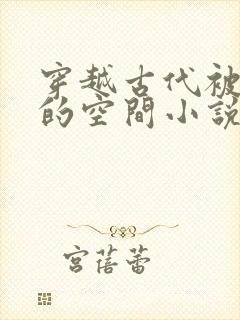 穿越古代被
的空間小說
宮蓓蕾